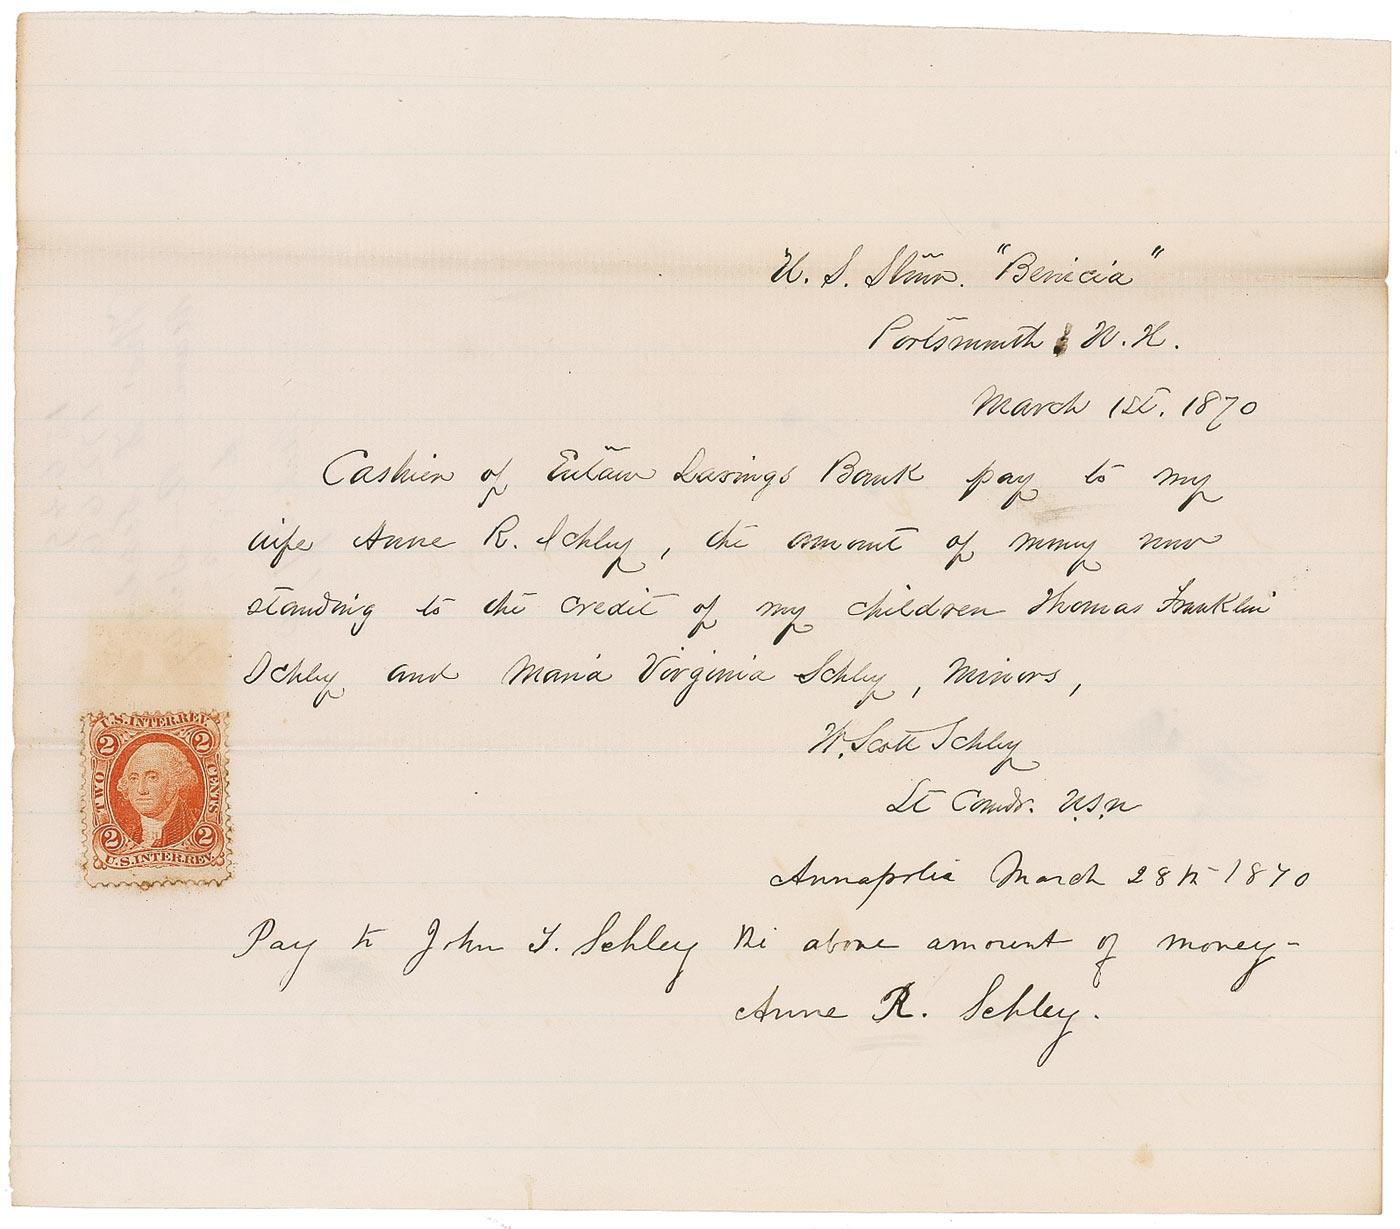 U. S. Stmr. "Benicia"
Portsmouth N. H.
March 1st. 1870
Cashier of Eutaw Savings Bank pay to my
wife Anne R. Schley, the amount of money now
standing to the credit of my children Thomas Franklin
Schley and Maria Virginia Schley, minors,
W. Scott Schley
Lt Comdr. U.S.N
Annapolis March 28th 1870
Pay to John T. Schley the above amount of money-
Anne R. Schley.
U.S. INTER. REV.
2 2
TWO CENTS
2 2
U.S. INTER. REV.